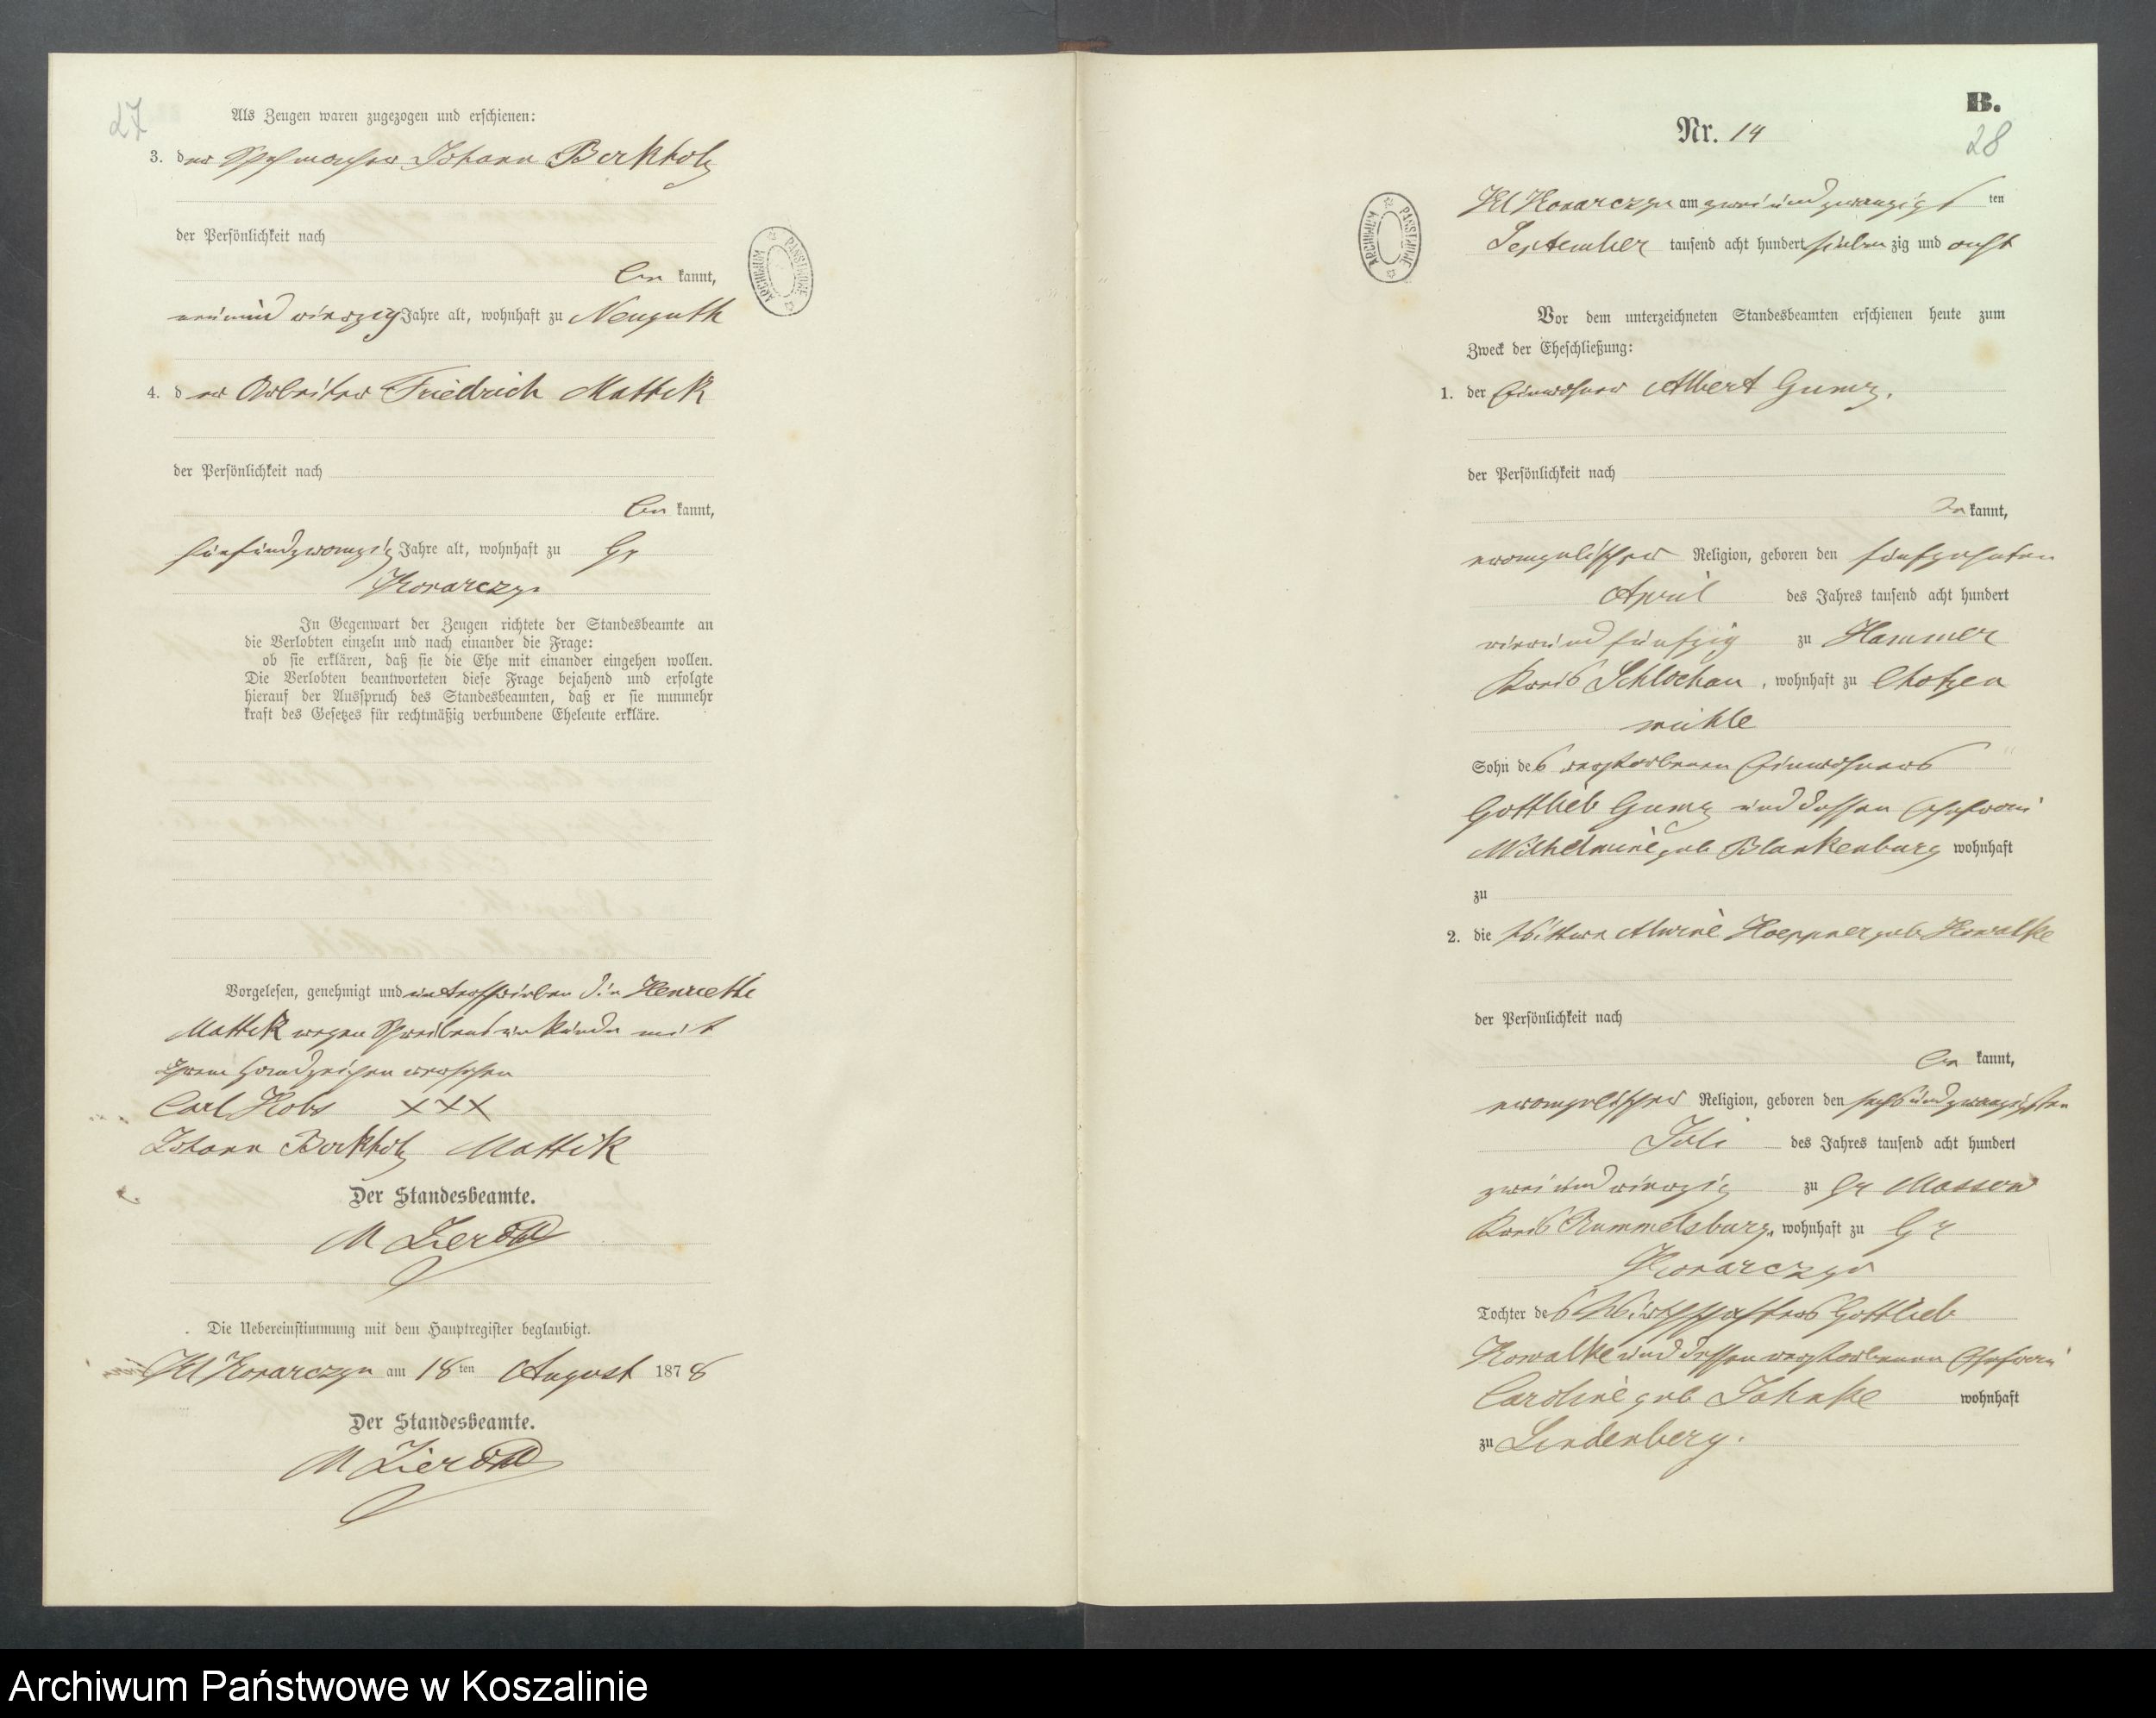 27
Als Zeugen waren zugezogen und erschienen:
3. der Johann Berkholz
der Persönlichkeit nach
be kannt,
neunund vierzig Jahre alt, wohnhaft zu Neuguth
4. der Arbeiter Friedrich Mattik
der Persönlichkeit nach
be kannt,
fünfundzwanzig Jahre alt, wohnhaft zu Gr
Konarczyn
In Gegenwart der Zeugen richtete der Standesbeamte an
die Verlobten einzeln und nach einander die Frage:
ob sie erklären, daß sie die Ehe mit einander eingehen wollen.
Die Verlobten beantworteten diese Frage bejahend und erfolgte
hierauf der Ausspruch des Standesbeamten, daß er sie nunmehr
kraft des Gesetzes für rechtmäßig verbundene Eheleute erkläre.
Vorgelesen, genehmigt und unterschrieben die Henriette
Mattik wegen Schreibensunkunde mit
ihrem Handzeichen versehen
Carl Kobs XXX
Johann Berkholz Mattik
Der Standesbeamte.
M
Die Uebereinstimmung mit dem Hauptregister beglaubigt.
Kl Konarczyn am 18 ten August 1878
Der Standesbeamte.
M
ARCHIWUM PAŃSTWOWE
B.
28
Nr. 14
Kl Konarczyn am zweiundzwanzigst ten
September tausend acht hundert sieben zig und acht
Vor dem unterzeichneten Standesbeamten erschienen heute zum
Zweck der Eheschließung:
1. der Einwohner Albert Gumz,
der Persönlichkeit nach
be kannt,
evangelischer Religion, geboren den fünfzehnten
April des Jahres tausend acht hundert
vierundfünfzig zu Hammer
Kreis Schlochau, wohnhaft zu Chotzen
mühle
Sohn des verstorbenen Einwohners
Gottlieb Gumz und dessen Ehefrau
Wilhelmine geb Blankenburg wohnhaft
zu
2. die Wittwe Alwine Hoeppner geb Kowalke
der Persönlichkeit nach
be kannt,
evangelischer Religion, geboren den sechsundzwanzigsten
Juli des Jahres tausend acht hundert
zweiundvierzig zu Gr Massow
Kreis Rummelsburg, wohnhaft zu Gr
Konarczyn
Tochter des Wirthschafters Gottlieb
Kowalke und dessen verstorbenen Ehefrau
Caroline geb Jahnke wohnhaft
zu Lindenberg.
ARCHIWUM PAŃSTWOWE
Archiwum Państwowe w Koszalinie